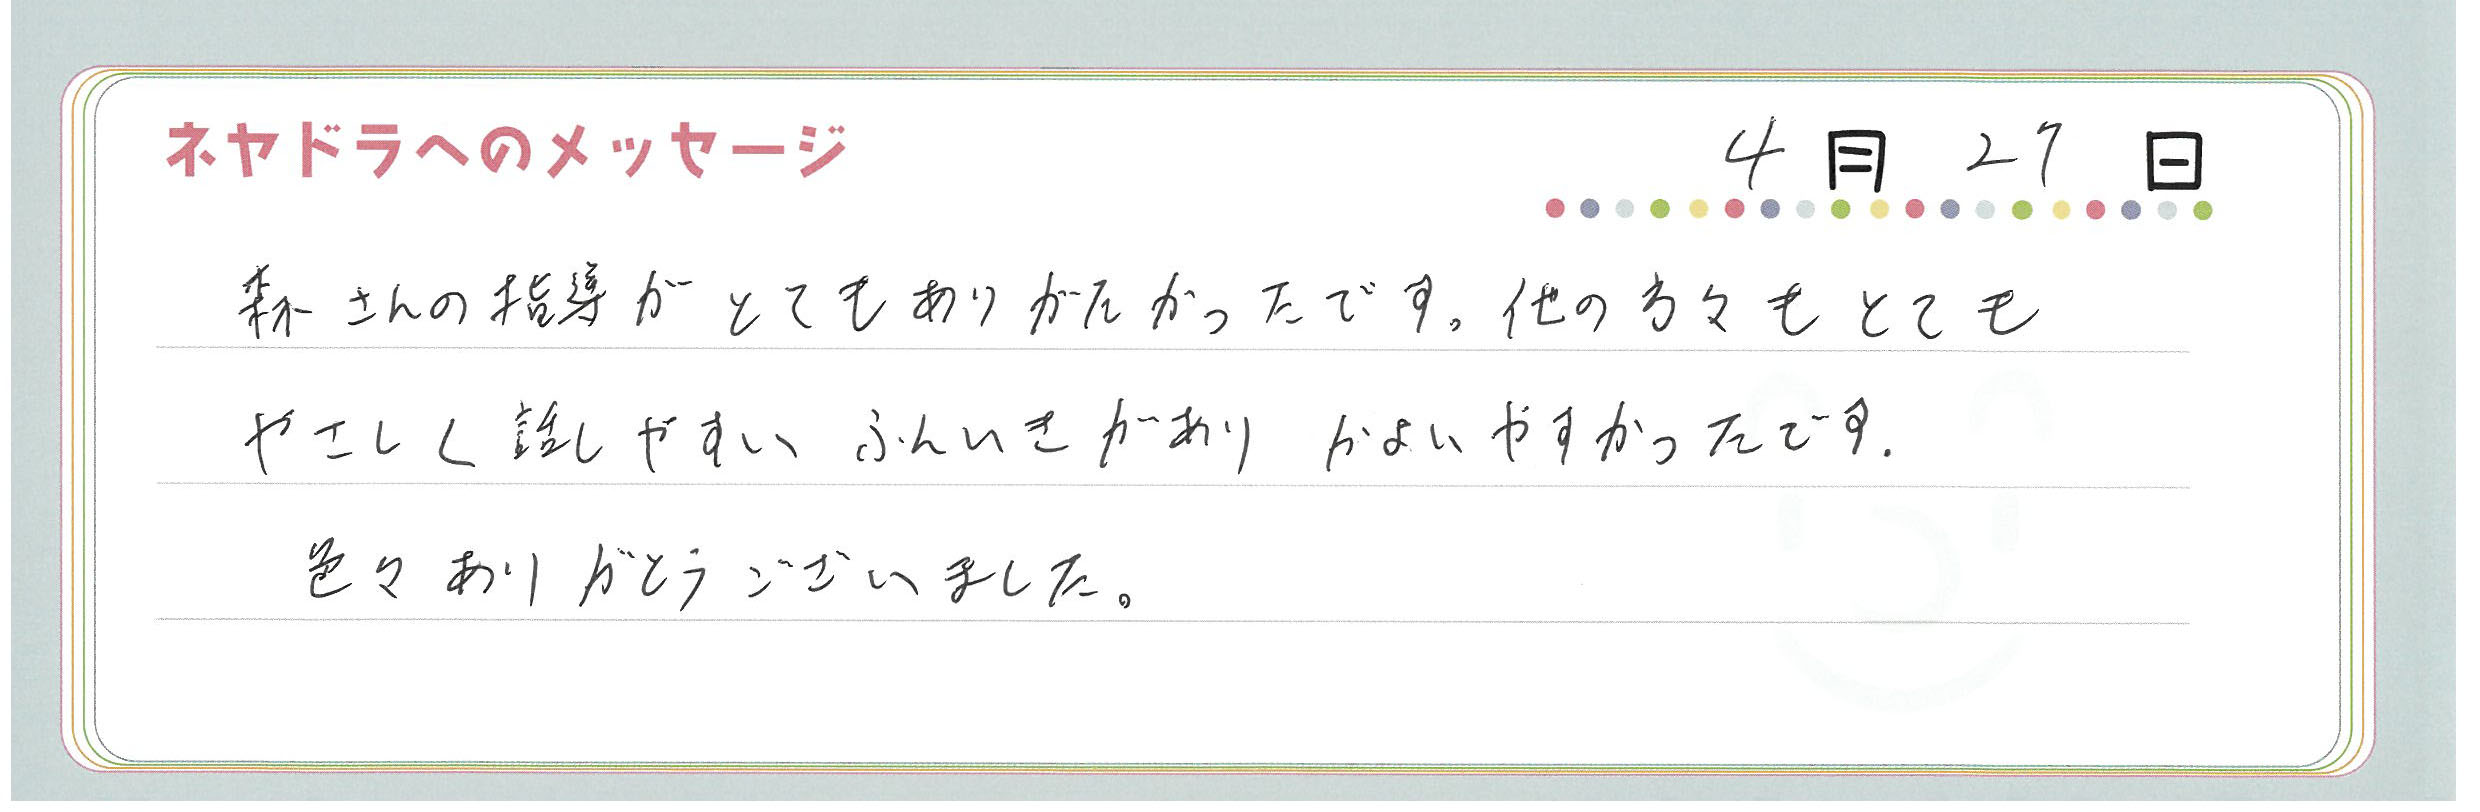 ネヤドラへのメッセージ
4月27日
森さんの指導がとてもありがたかったです。他の方々もとても
やさしく話しやすいふんいきがありかよいやすかったです.
色々ありがとうございました。